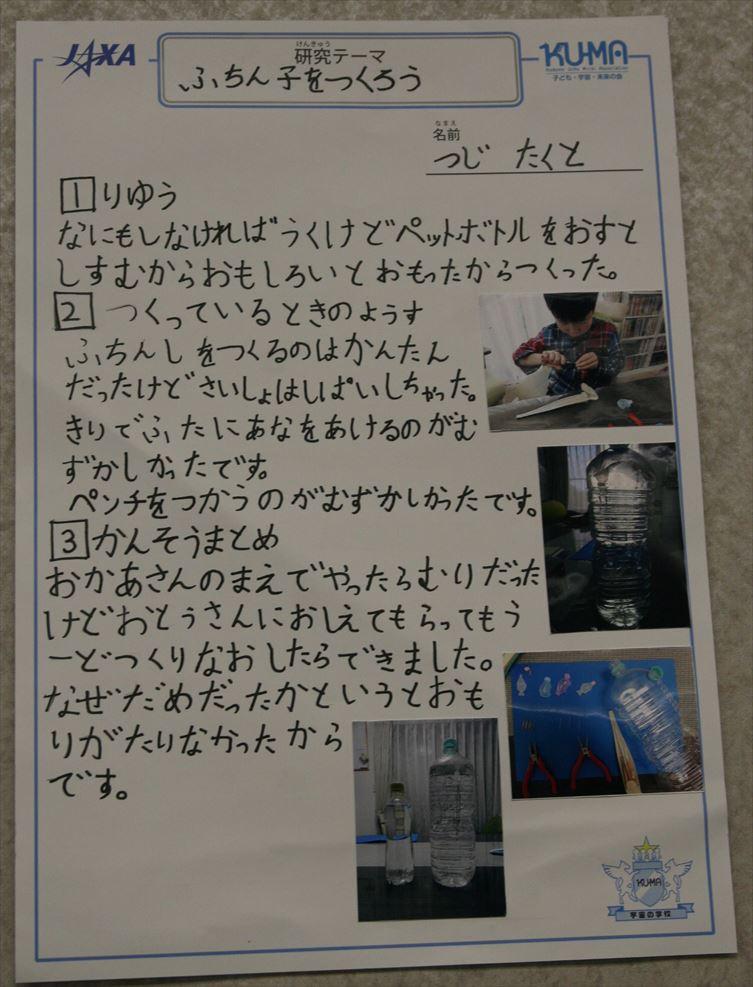 JAXA
けんきゅう
研究テーマ
ふちん子をつくろう
KU-MA
子ども・宇宙・未来の会
なまえ
名前
つじ たくと
1 りゆう
なにもしなければうくけどペットボトルをおすと
しずむからおもしろいとおもったからつくった。
2 つくっているときのようす
ふちんしをつくるのはかんたん
だったけどさいしょはしぱいしちゃった。
きりでふたにあなをあけるのがむ
ずかしかったです。
ペンチをつかうのがむずかしかったです。
3 かんそうまとめ
おかあさんのまえでやったらむりだった
けどおとうさんにおしえてもらってもう
一どつくりなおしたらできました。
なぜだめだったかというとおも
りがたりなかったから
です。
KUMA
宇宙の学校